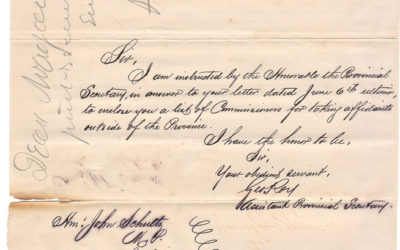 Sir,
I am instructed by the Honorable the Provincial
Secretary, in answer to your letter dated June 6th ultimo,
to enclose you a list of Commissioners for taking affidavits
outside of the Province.
I have the honor to be,
Sir,
Your obedient servant,
Geo
Assistant Provincial Secretary.
Hon: John Schultz
M.P.
Dear